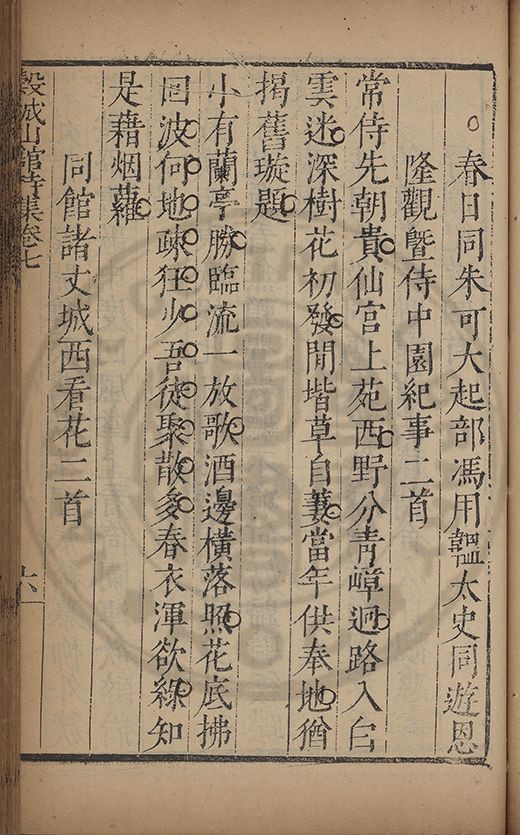 春日同朱可大起部馮用韞太史同遊恩
隆觀曁侍中園紀事二首
常侍先朝貴仙宮上苑西野分青嶂逈路入白
雲迷深樹花初發閒堦草自萋當年供奉地猶
揭舊璇題
小有蘭亭勝臨流一放歌酒邊橫落照花底拂
回波何地疎狂少吾徒聚散多春衣渾欲綠知
是藉烟蘿
同館諸丈城西看花二首
穀城山館詩集卷七
六